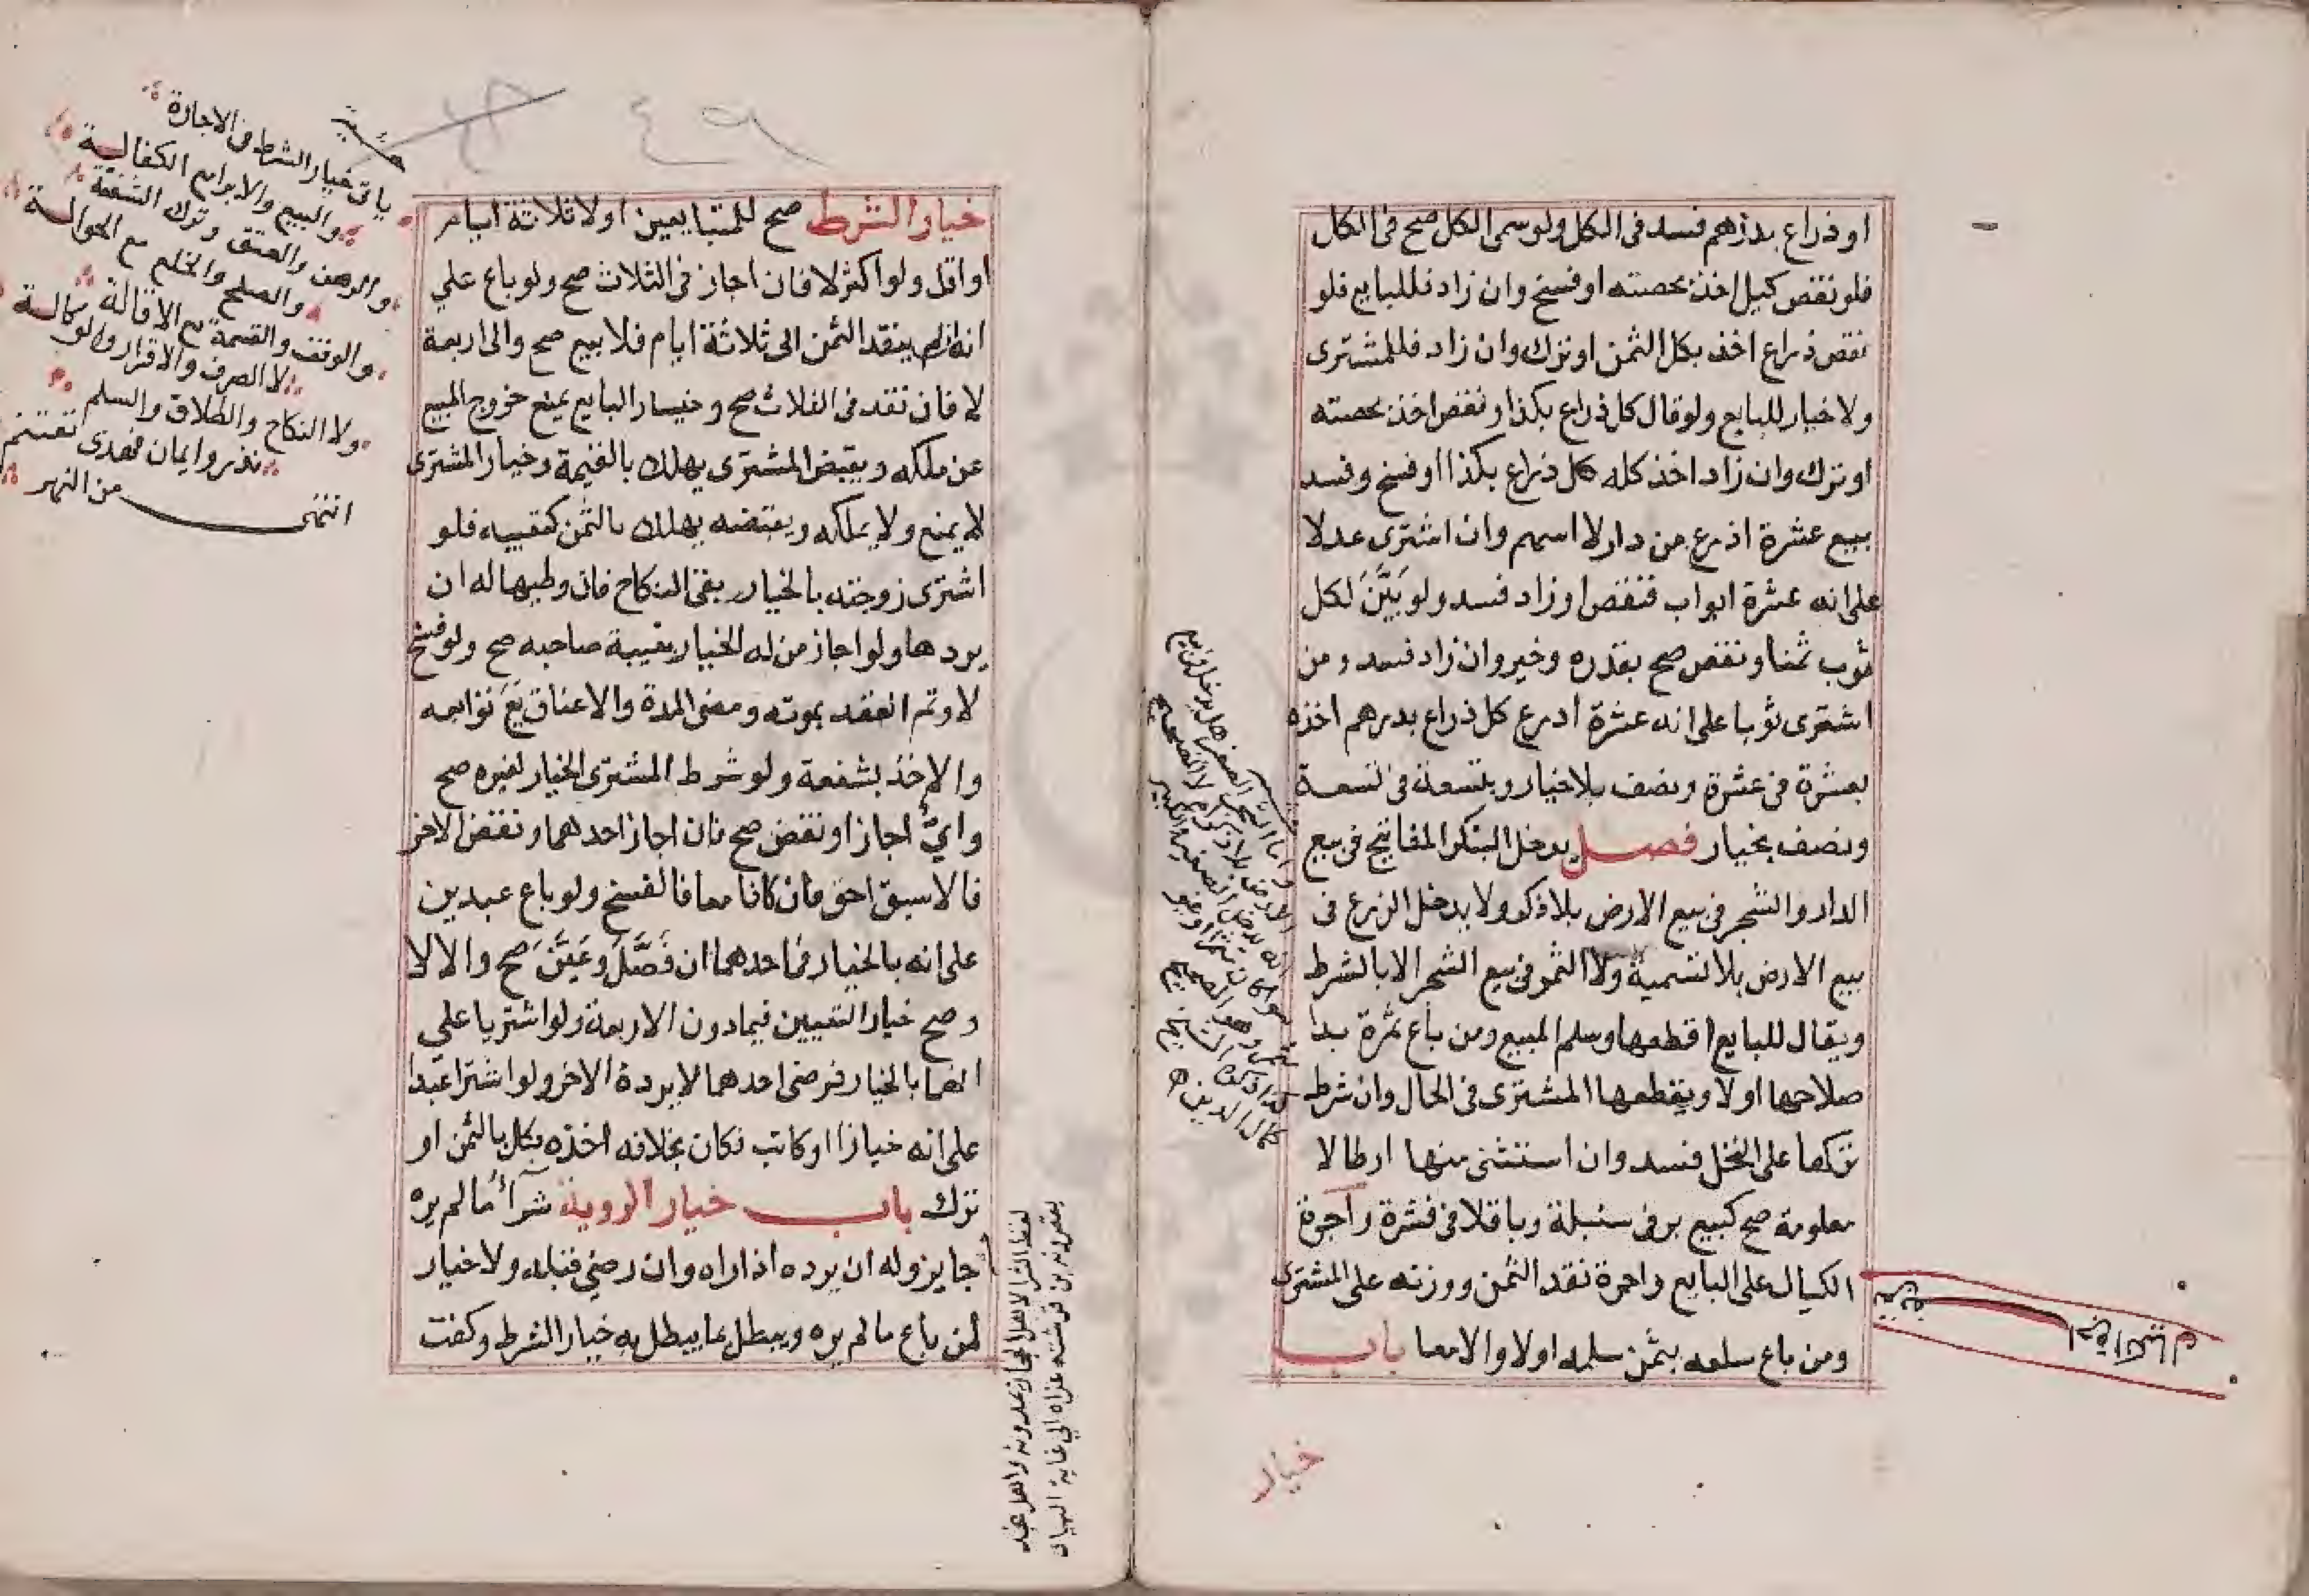 او ذراع بدرهم فسد فى الكل ولو سمى الكل صح فى الكل
فلو نقص كيل اخذ بحصته او فسخ وان زاد فللبايع فلو
نقص ذراع اخذ بكل الثمن او ترك وان زاد فللمشترى
ولا خيار للبايع ولو قال كل ذراع بكذا ونقص اخذ بحصته
او ترك وان زاد اخذ كله كل ذراع بكذا او فسخ وفسد
بيع عشرة اذرع من دار لا اسهم وان اشترى عدلا
على انه عشرة ابواب فنقص او زاد فسد ولو بَيَّنَ لكل
ثوب ثمنا ونقص صح بقدره وخير وان زاد فسد ومن
اشترى ثوبا على انه عشرة ادرع كل ذراع بدرهم اخذه
بعشرة فى عشرة ونصف بلا خيار وبتسعة فى تسعة
ونصف بخيار فصل يدخل البنا والمفاتيح فى بيع
الدار والشجر فى بيع الارض بلا ذكر ولا يدخل الزرع فى
بيع الارض بلا تسمية ولا الثمر فى بيع الشجر الا بالشرط
ويقال للبايع اقطعها وسلم المبيع ومن باع ثمرة بدا
صلاحها اولا ويقطعها المشترى فى الحال وان شرط
تركها على النخل فسد وان استثنى منها ارطالا
معلومة صح كبيع بر فى سنبلة وباقلا فى قشرة واجرة
الكيال على البايع واجرة نقد الثمن ووزنه على المشترى
ومن باع سلعه بثمن سلمه اولا والا معا باب
خيار
واما الشجر الصغير هل يدخل فى بيع
الارض بلا ذكر ام لا الصحيح
انه يدخل الصغير والكبير
سواء كان مثمرا او غير
مثمر وهو الصحيح
كذا ذكره الشيخ
كمال الدين
خيار الشرط صح للمتبايعين اولا ثلاثة ايام
او اقل ولو اكثر لا فان اجاز فى الثلاث صح ولو باع علي
انه ان لم ينقد الثمن الى ثلاثة ايام فلا بيع صح والى اربعة
لا فان نقد فى الثلاث صح وخيار البايع يمنع خروج المبيع
عن ملكه وبقبض المشترى يهلك بالقيمة وخيار المشترى
لا يمنع ولا يملكه وبقبضه يهلك بالثمن كتعيبه فلو
اشترى زوجته بالخيار بقى النكاح فان وطيها له ان
يردها ولو اجاز من له الخيار بغيبة صاحبه صح ولو فسخ
لا وتم العقد بموته ومضى المدة والاعتاق وتوابعه
والاخذ بشفعة ولو شرط المشترى الخيار لغيره صح
وايٌّ اجاز او نقض صح فان اجاز احدهما ونقض الاخر
فالاسبق احق فان كانا معا فالفسخ ولو باع عبدين
على انه بالخيار فى احدهما ان فَصَّلَ وعَيَّنَ صح والا لا
وصح خيار التعيين فيما دون الاربعة ولو اشتريا علي
انهما بالخيار فرضى احدهما لا يرده الاخر ولو اشترا عبدا
على انه خبازا او كاتب فكان بخلافه اخذه بكل الثمن او
ترك باب خيار الروية شرآء ما لم يره
جايز وله ان يرده اذا راه وان رضي قبله ولا خيار
لمن باع ما لم يره ويبطل بما يبطل به خيار الشرط وكفت
ياتى خيار الشرط فى الاجارة
والبيع والابراء مع الكفالة
والرهن والعتق وترك الشفعة
والصلح والخلع مع الحوالة
والوقف والقسمة مع الاقالة
لا الصرف والاقرار والوكالة
ولا النكاح والطلاق والسلم
نذر وايمان فهذى تغتنم
انتهى من النهر